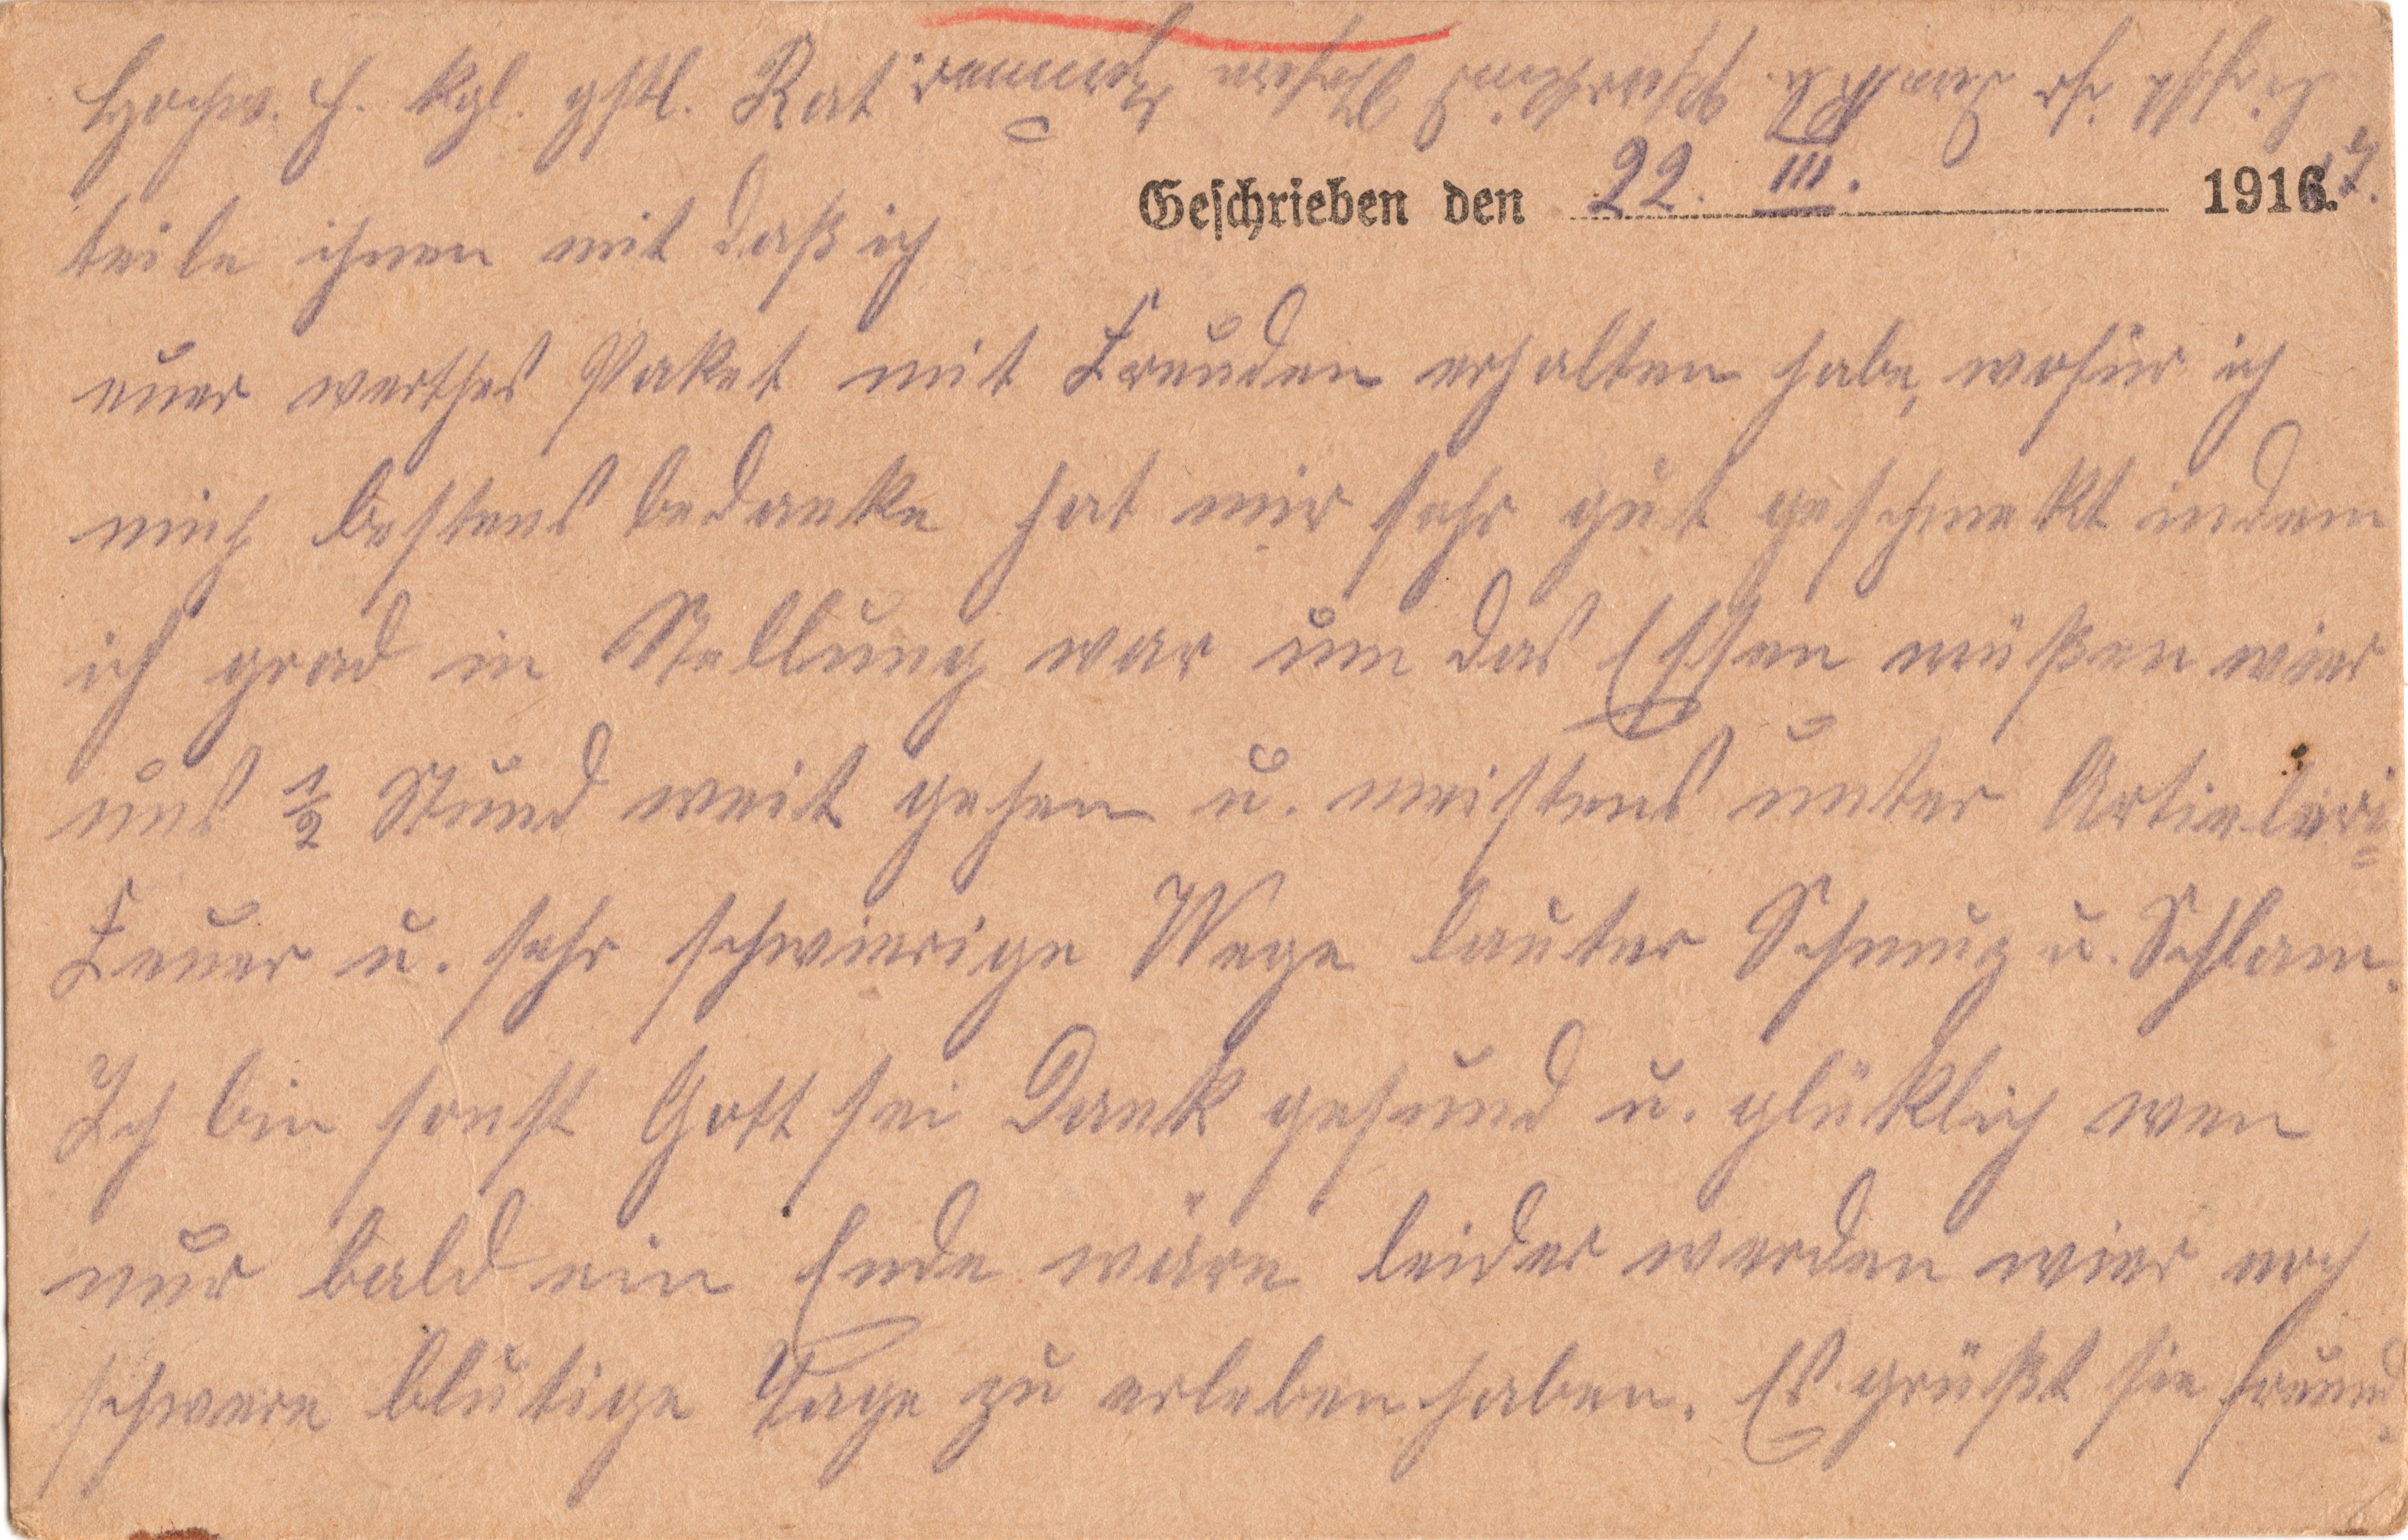 Hochw. H. kgl. gstl. Rat
Geschrieben den 22. III. 1916. 17.
teile ihnen mit daß ich
euer werthes Paket mit Freuden erhalten habe, wofür ich
mich bestens bedanke hat mir sehr gut geschmekt indem
ich grad in Stellung war um das Essen müßen wier
uns ½ Stund weit gehen u. meistens unter Artieleri=
Feuer u. sehr schwierige Wege lauter Schmuz u. Schlam.
Ich bin sonst Gott sei Dank gesund u. glüklich wen
nur bald ein Ende wäre leider werden wier noch
schwere blutige Tage zu erleben haben. Es grüßt sie freund